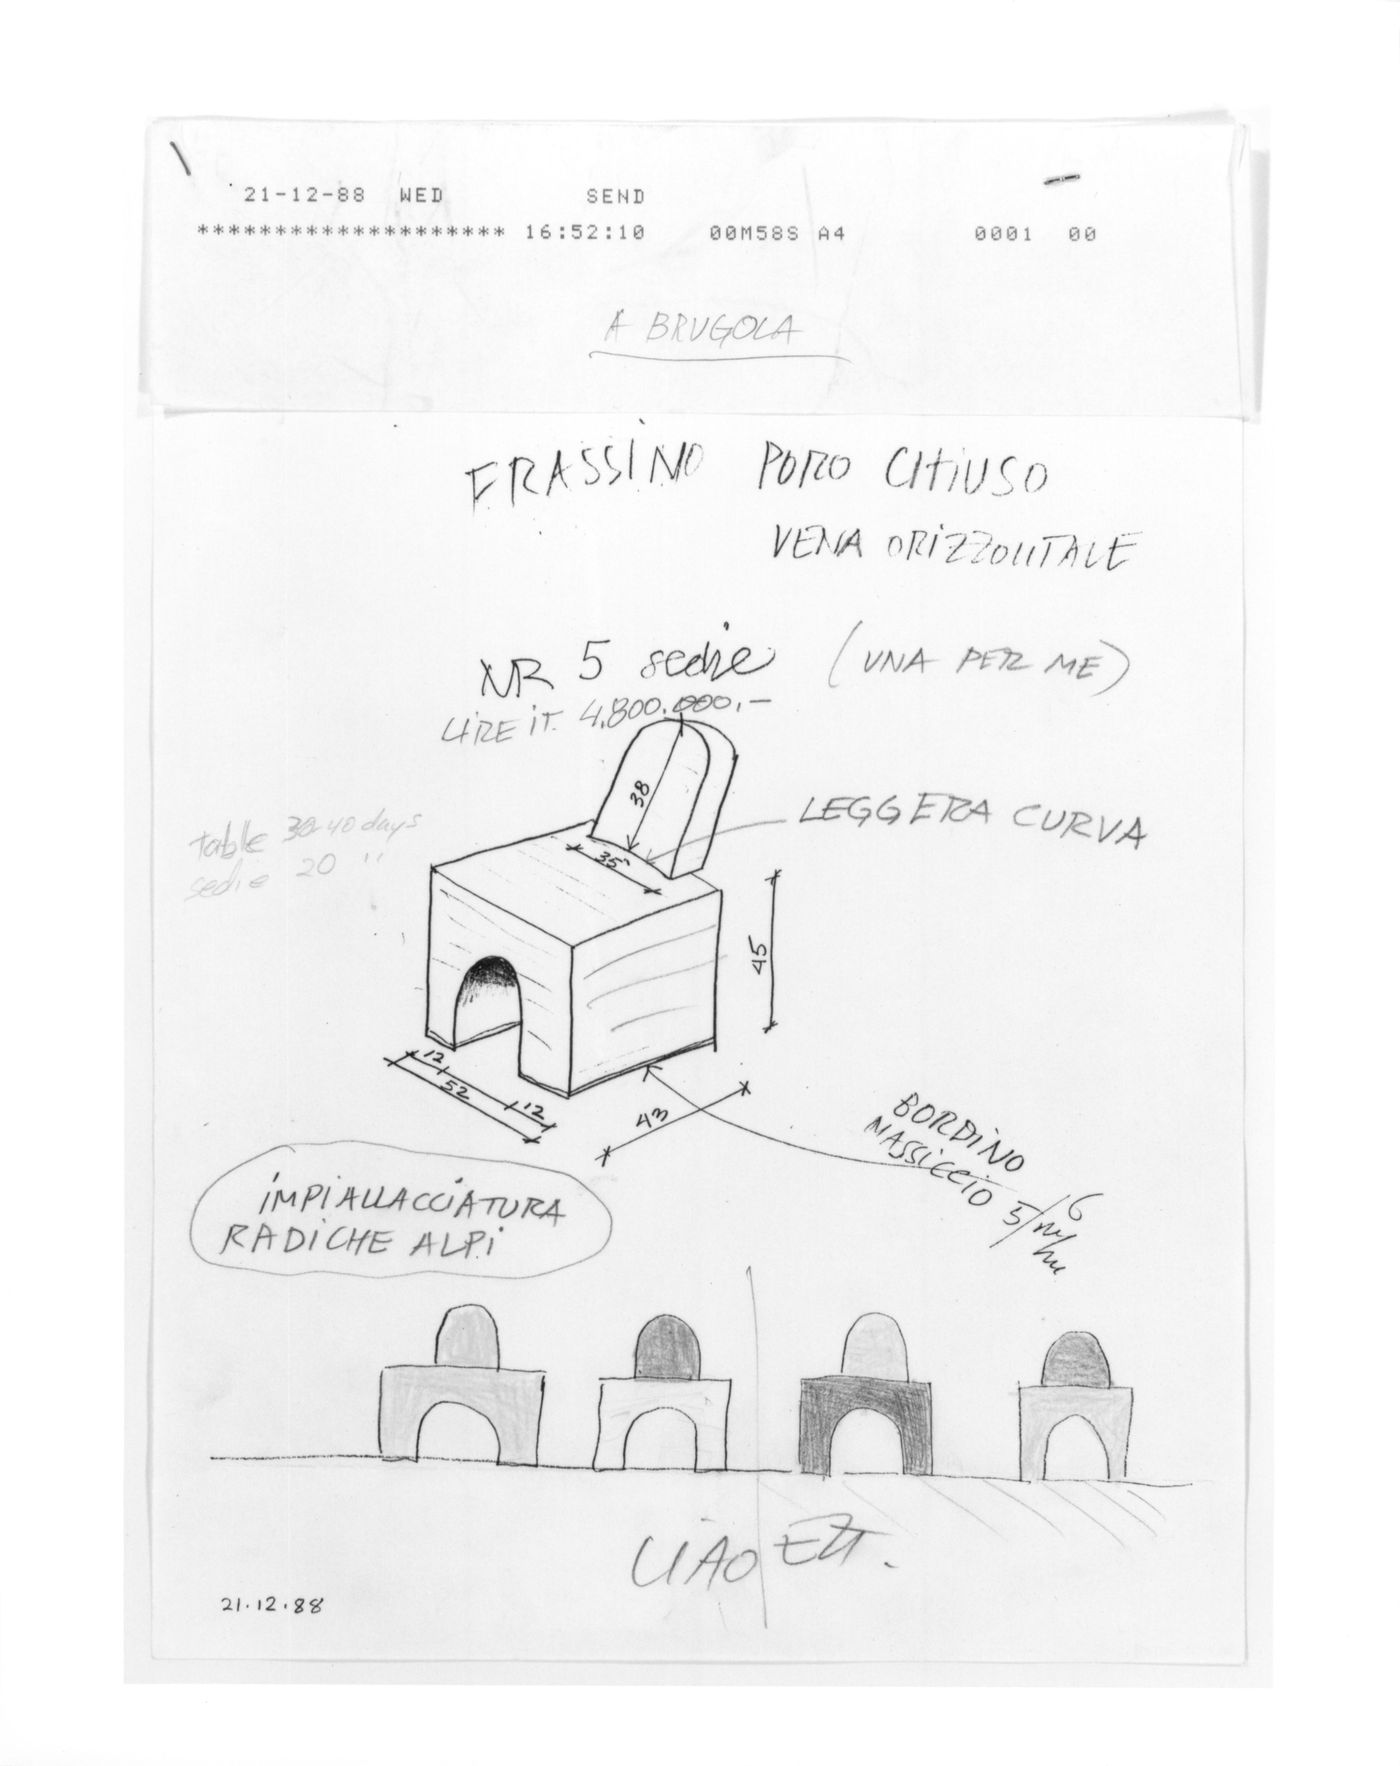 21-12-88 WED SEND
******************** 16:52:10 00M58S A4 0001 00
A BRUGOLA
FRASSINO PORO CHIUSO
VENA ORIZZONTALE
NR 5 sedie (UNA PER ME)
LIRE iT. 4.800.000,-
38
LEGGERA CURVA
table 30-40 days
sedie 20 "
35
45
12
52
12
43
BORDINO
MASSICCIO 5/6 m/m
IMPIALLACCIATURA
RADICHE ALPI
CIAO
21.12.88